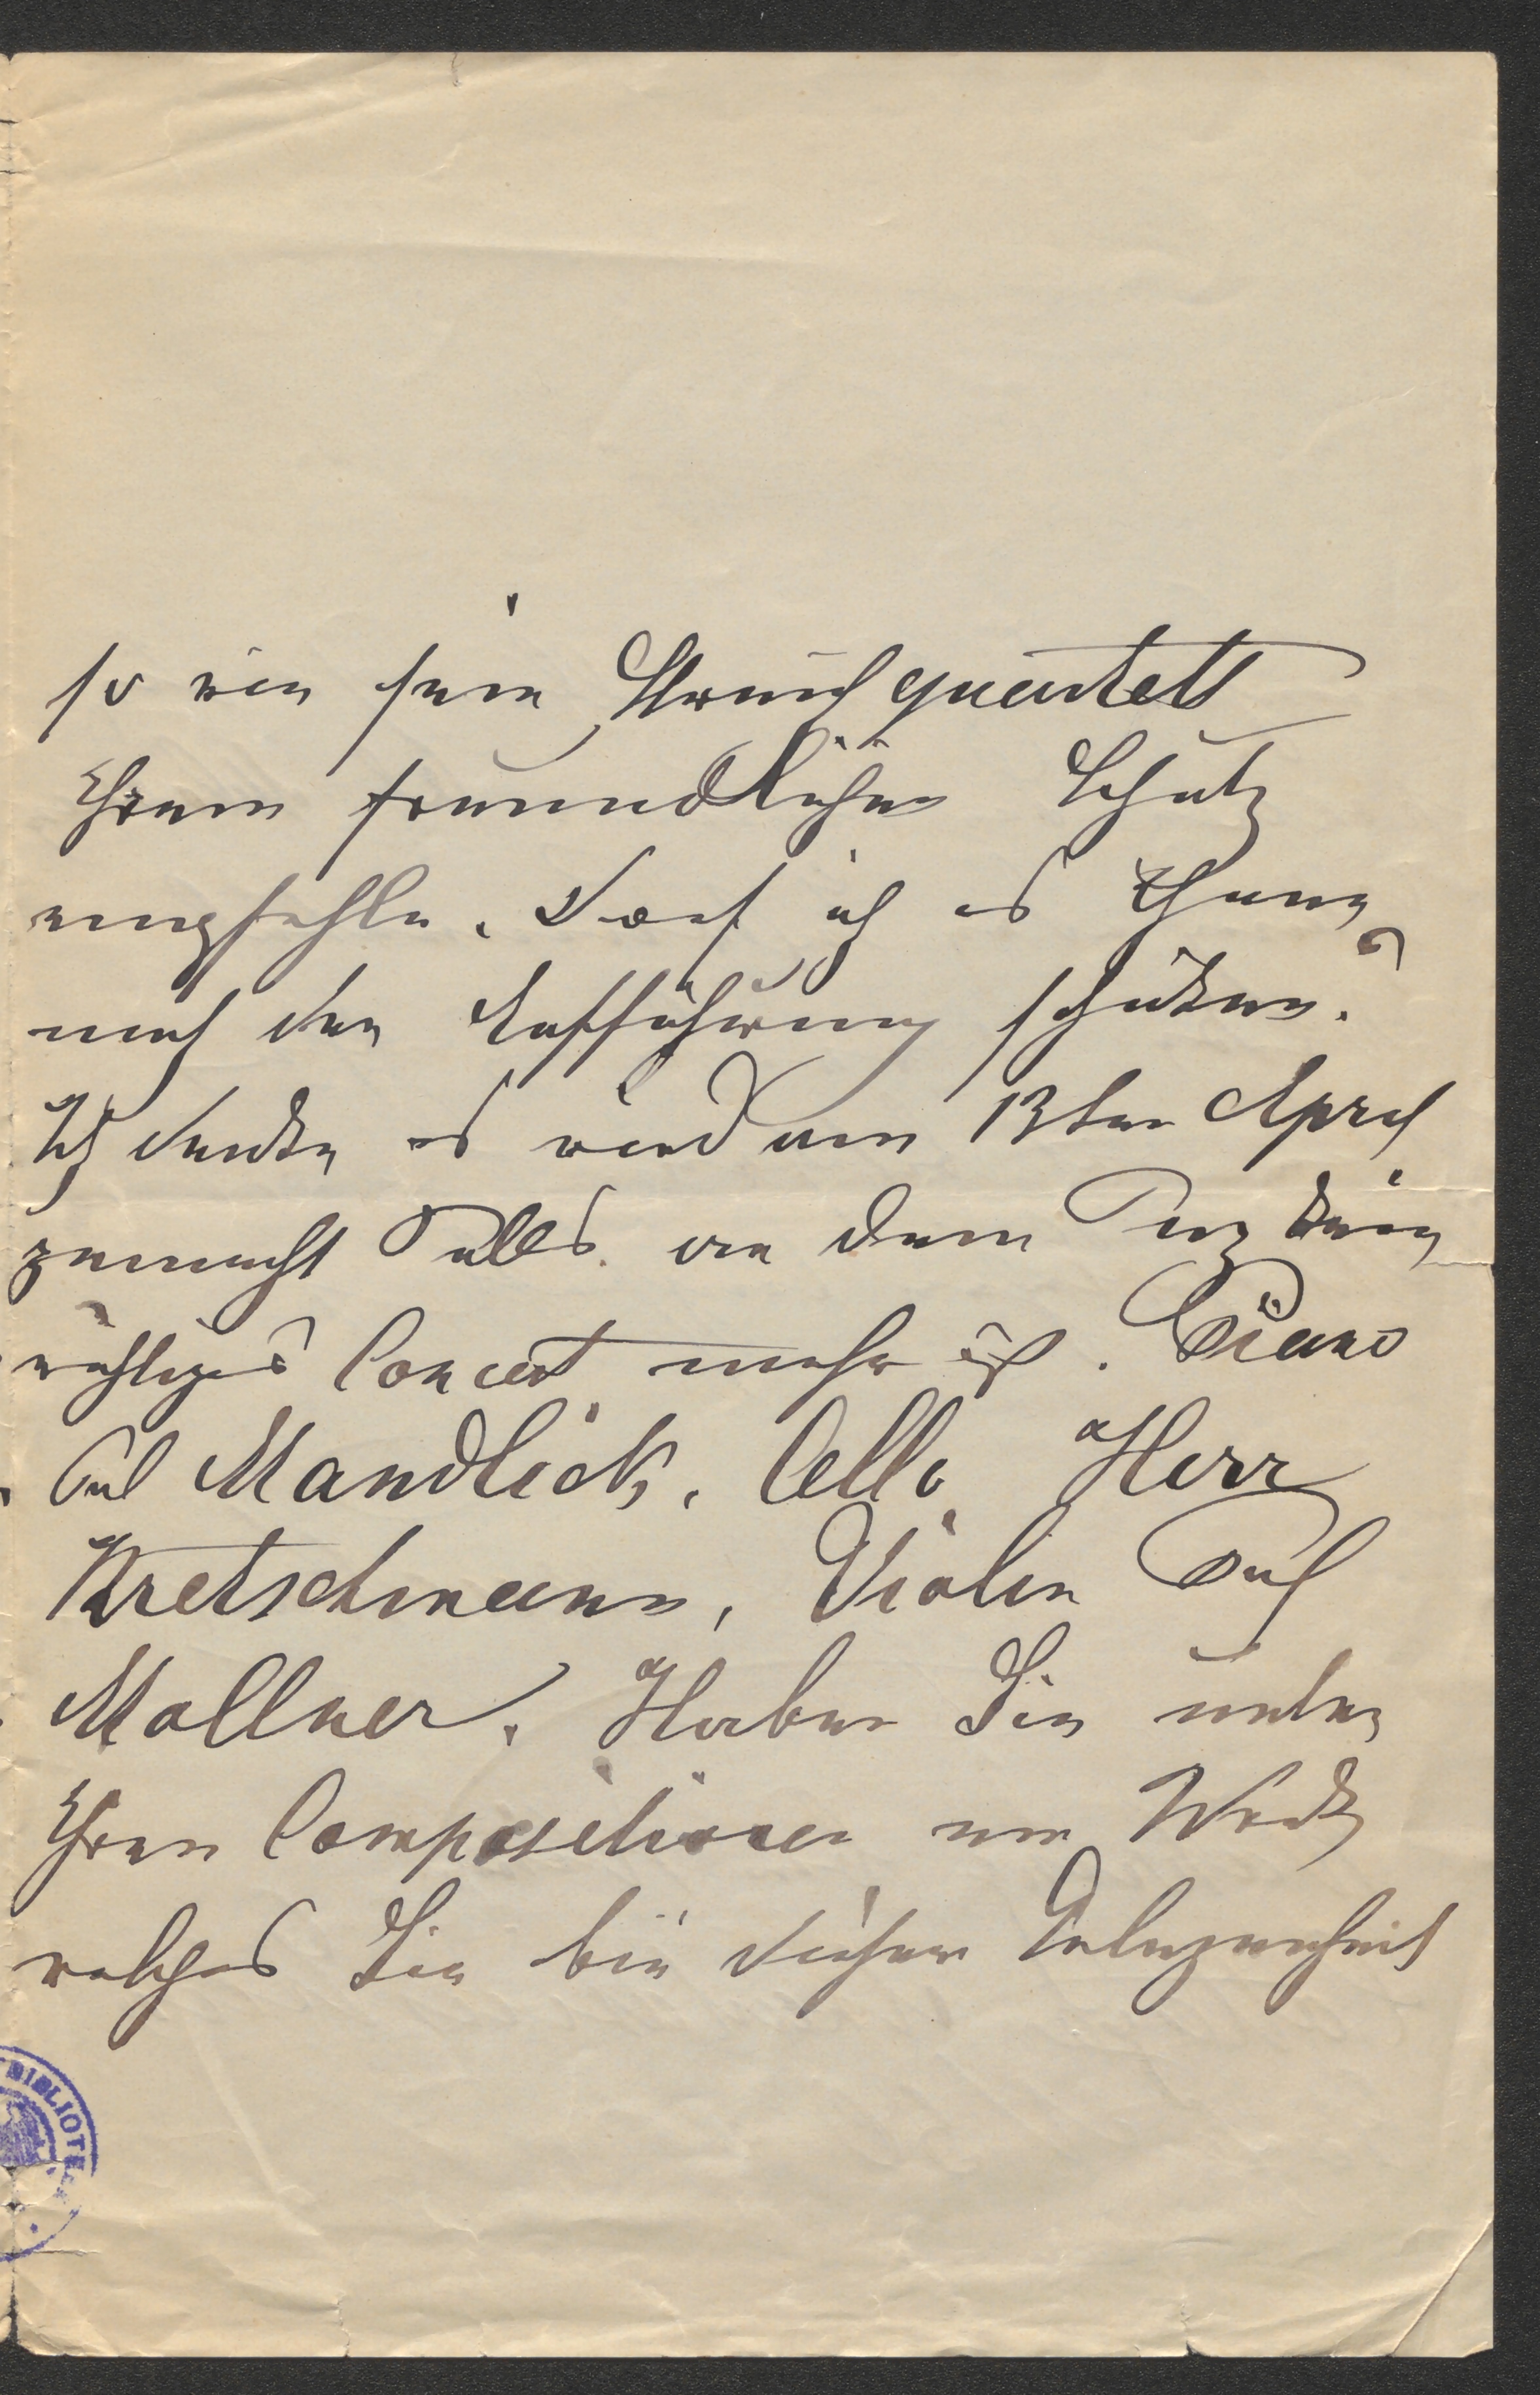 so wie sein Streichquartett
Ihrem freundlichen Schutz
empfehle. Darf ich es Ihnen
nach der Aufführung schicken?
Ich denke es wird am 13ten April
gemacht falls an dem Tag kein
wichtiges Concert mehr ist. Piano
Frl Mandlick, Cello Herr
Kretschmann, Violin Frl
Mollner. Haben Sie unter
Ihren Compositionen ein Werk
welches Sie bei dieser Gelegenheit
BIBLIOTE